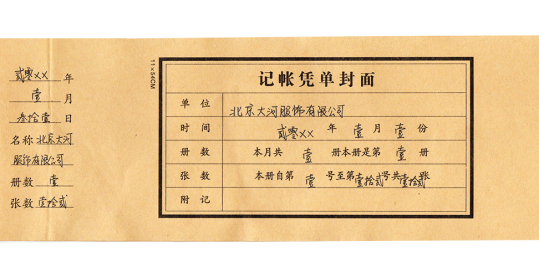 贰零XX 年
壹 月
叁拾壹 日
名称 北京大河
服饰有限公司
册数 壹
张数 壹拾贰
11×54CM
记帐凭单封面
单位 北京大河服饰有限公司
时间 贰零XX 年 壹 月 壹 份
册数 本月共 壹 册本册是第 壹 册
张数 本册自第 壹 号至第 壹拾贰 号共 壹拾贰 张
附记